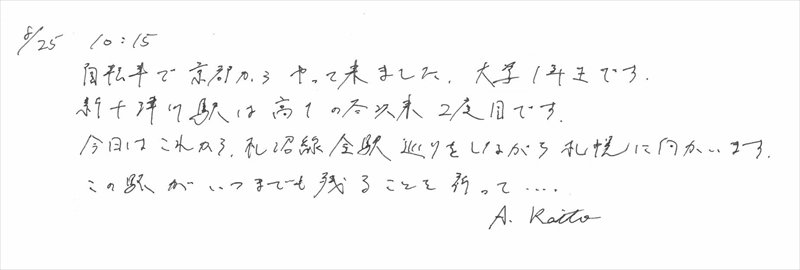 8/25 10:15
自転車で京都からやって来ました。大学1年生です。
新十津川駅は高1の冬以来2度目です。
今日はこれから、札沼線全駅巡りをしながら札幌に向かいます。
この駅がいつまでも残ることを祈って....
A. Kaito